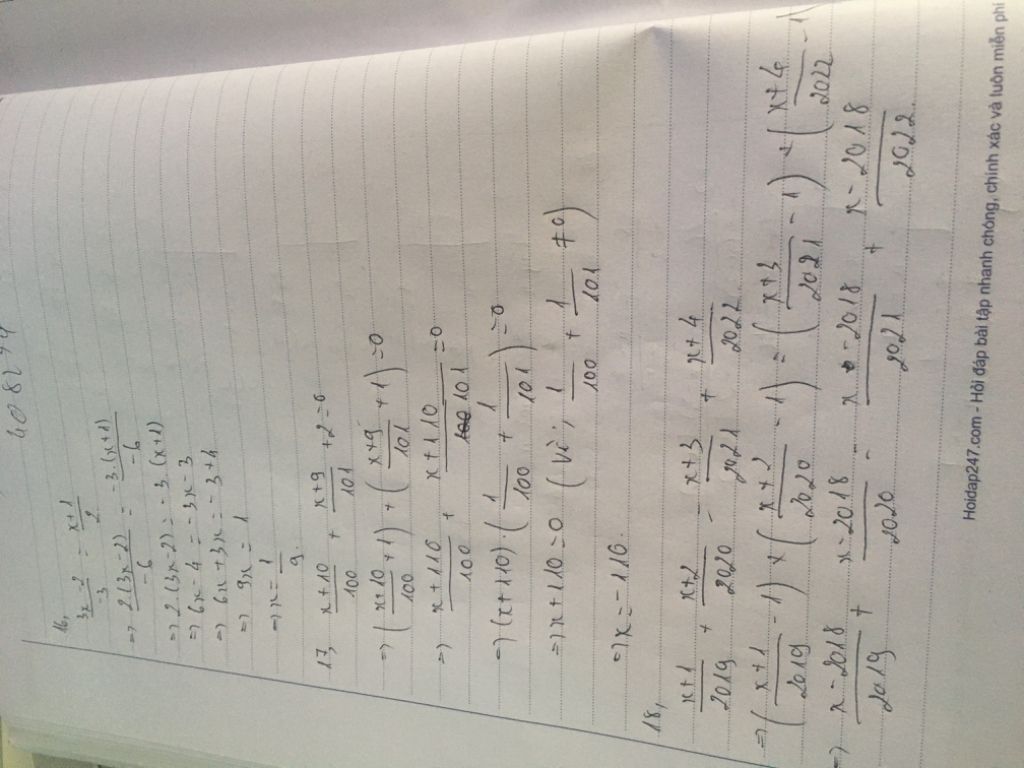 4082 74
16,
3x-2/-3 = x+1/2
=> 2(3x-2)/-6 = -3(x+1)/-6
=> 2(3x-2) = -3.(x+1)
=> 6x-4 = -3x-3
=> 6x+3x = -3+4
=> 9x = 1
=> x = 1/9
17, x+10/100 + x+9/101 + 2=0
=> (x+10/100 + 1) + (x+9/101 + 1) =0
=> x+110/100 + x+110/101 =0
=> (x+110).(1/100 + 1/101) =0
=> x+110=0 (Vì; 1/100 + 1/101 ≠0)
=> x=-110.
18,
x+1/2019 + x+2/2020 - x+3/2021 + x+4/2022
=> (x+1/2019 - 1) + (x+2/2020 - 1) = (x+3/2021 - 1) + (x+4/2022 - 1)
=> x-2018/2019 + x-2018/2020 = x-2018/2021 + x-2018/2022.
Hoidap247.com - Hỏi đáp bài tập nhanh chóng, chính xác và luôn miễn phí